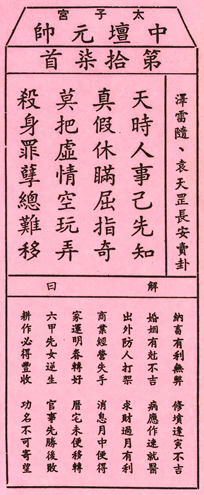 太子宮
中壇元帥
第拾柒首
澤雷隨、袁天罡長安賣卦
天時人事己先知
真假休瞞屈指奇
莫把虛情空玩弄
殺身罪孽總難移
解曰
納畜有利無弊 修墳逢寅不吉
婚姻有尅不吉 病應作速就醫
出外防人打架 求財過月有利
商業經營失手 消息月中便得
家運明春轉好 厝宅未便移轉
六甲先女逆生 官事先勝後敗
耕作必得豐收 功名不可寄望